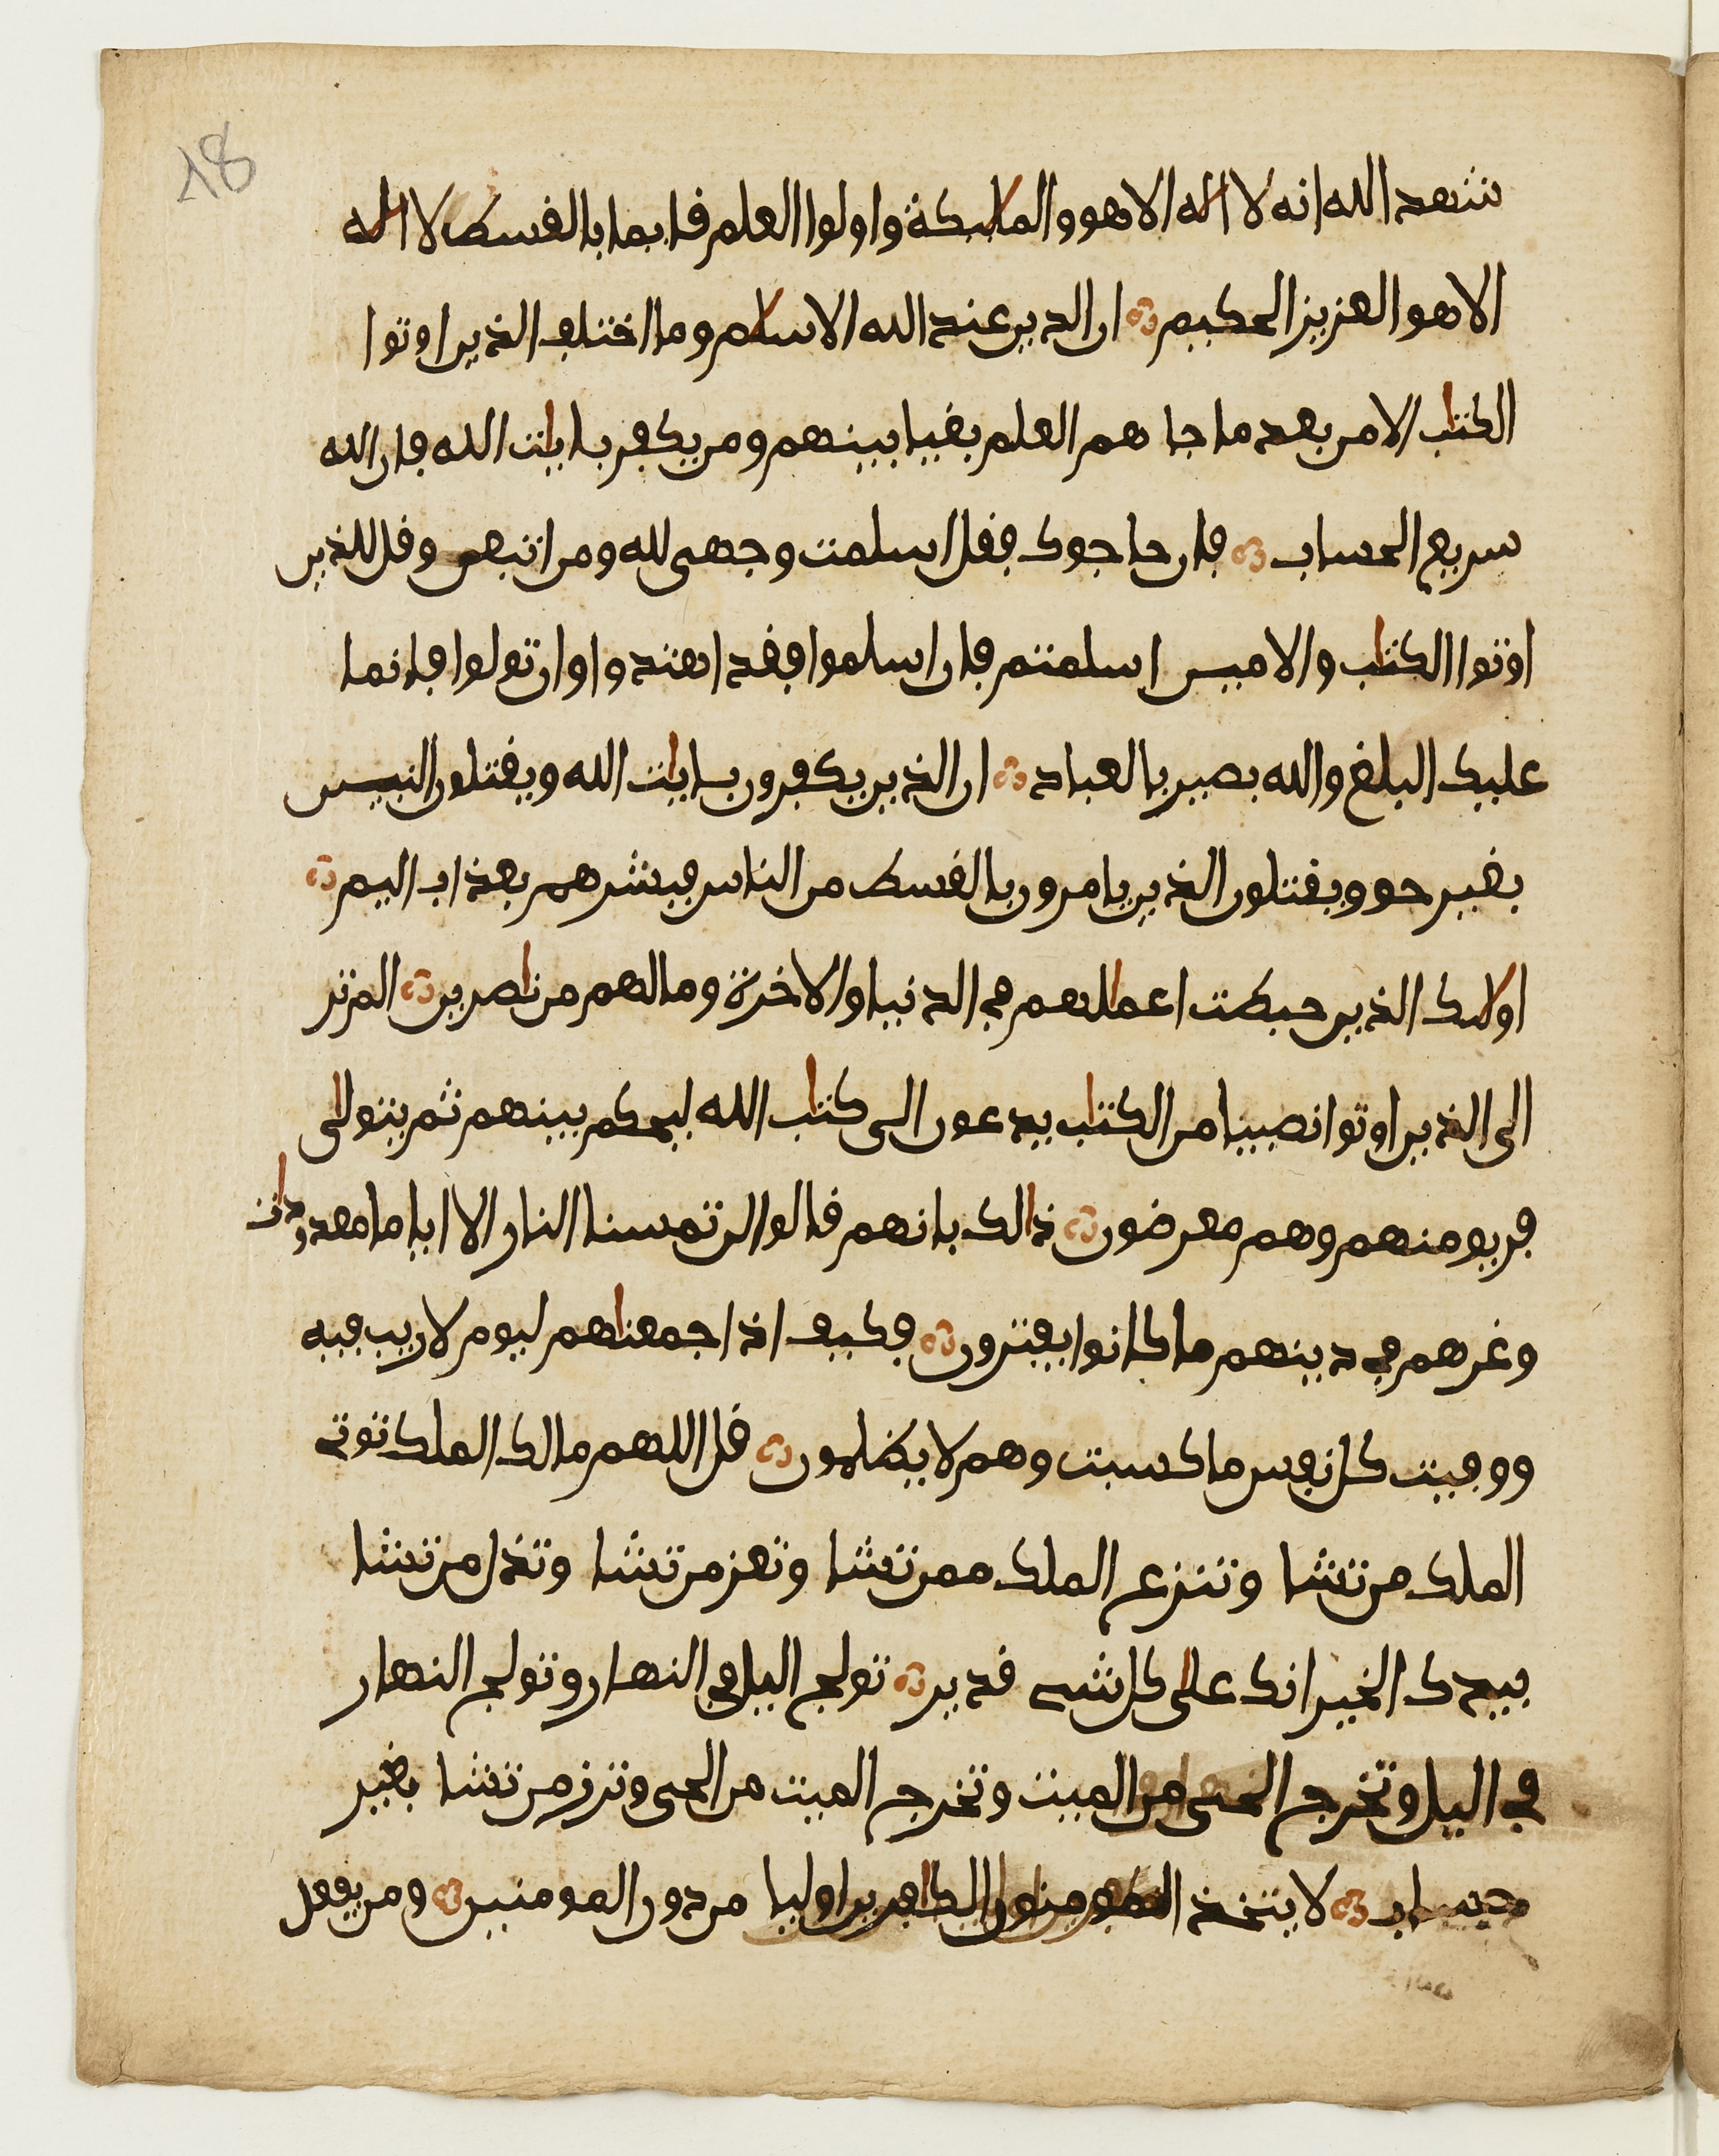 18
شهد الله انه لا اله الا هو والملىكة واولوا العلم قايما بالقسط لا اله
الا هو العزيز الحكيم ان الدين عند الله الاسلم وما اختلف الذين اوتوا
الكتب الا من بعد ما جا هم العلم بغيا بينهم ومن يكفر بايت الله فان الله
سريع الحساب فان حاجوك فقل اسلمت وجهى لله ومن اتبعن وقل للذين
اوتوا الكتب والاميين اسلمتم فان اسلموا فقد اهتدوا وان تولوا فانما
عليك البلغ والله بصير بالعباد ان الذين يكفرون بايت الله ويقتلون النبيين
بغير حق ويقتلون الذين يامرون بالقسط من الناس فبشرهم بعذاب اليم
اولىك الذين حبطت اعملهم في الدنيا والاخرة وما لهم من نصرين الم تر
الى الذين اوتوا نصيبا من الكتب يدعون الى كتب الله ليحكم بينهم ثم يتولى
فريق منهم وهم معرضون ذالك بانهم قالوا لن تمسنا النار الا اياما معدودات
وغرهم في دينهم ما كانوا يفترون فكيف اذا جمعنهم ليوم لا ريب فيه
ووفيت كل نفس ما كسبت وهم لا يظلمون قل اللهم مالك الملك توتي
الملك من تشا وتنزع الملك ممن تشا وتعز من تشا وتذل من تشا
بيدك الخير انك على كل شي قدير تولج اليل في النهار وتولج النهار
في اليل وتخرج الحى من الميت وتخرج الميت من الحى وترزق من تشا بغير
حساب لا يتخذ المومنون الكفرين اوليا من دون المومنين ومن يفعل